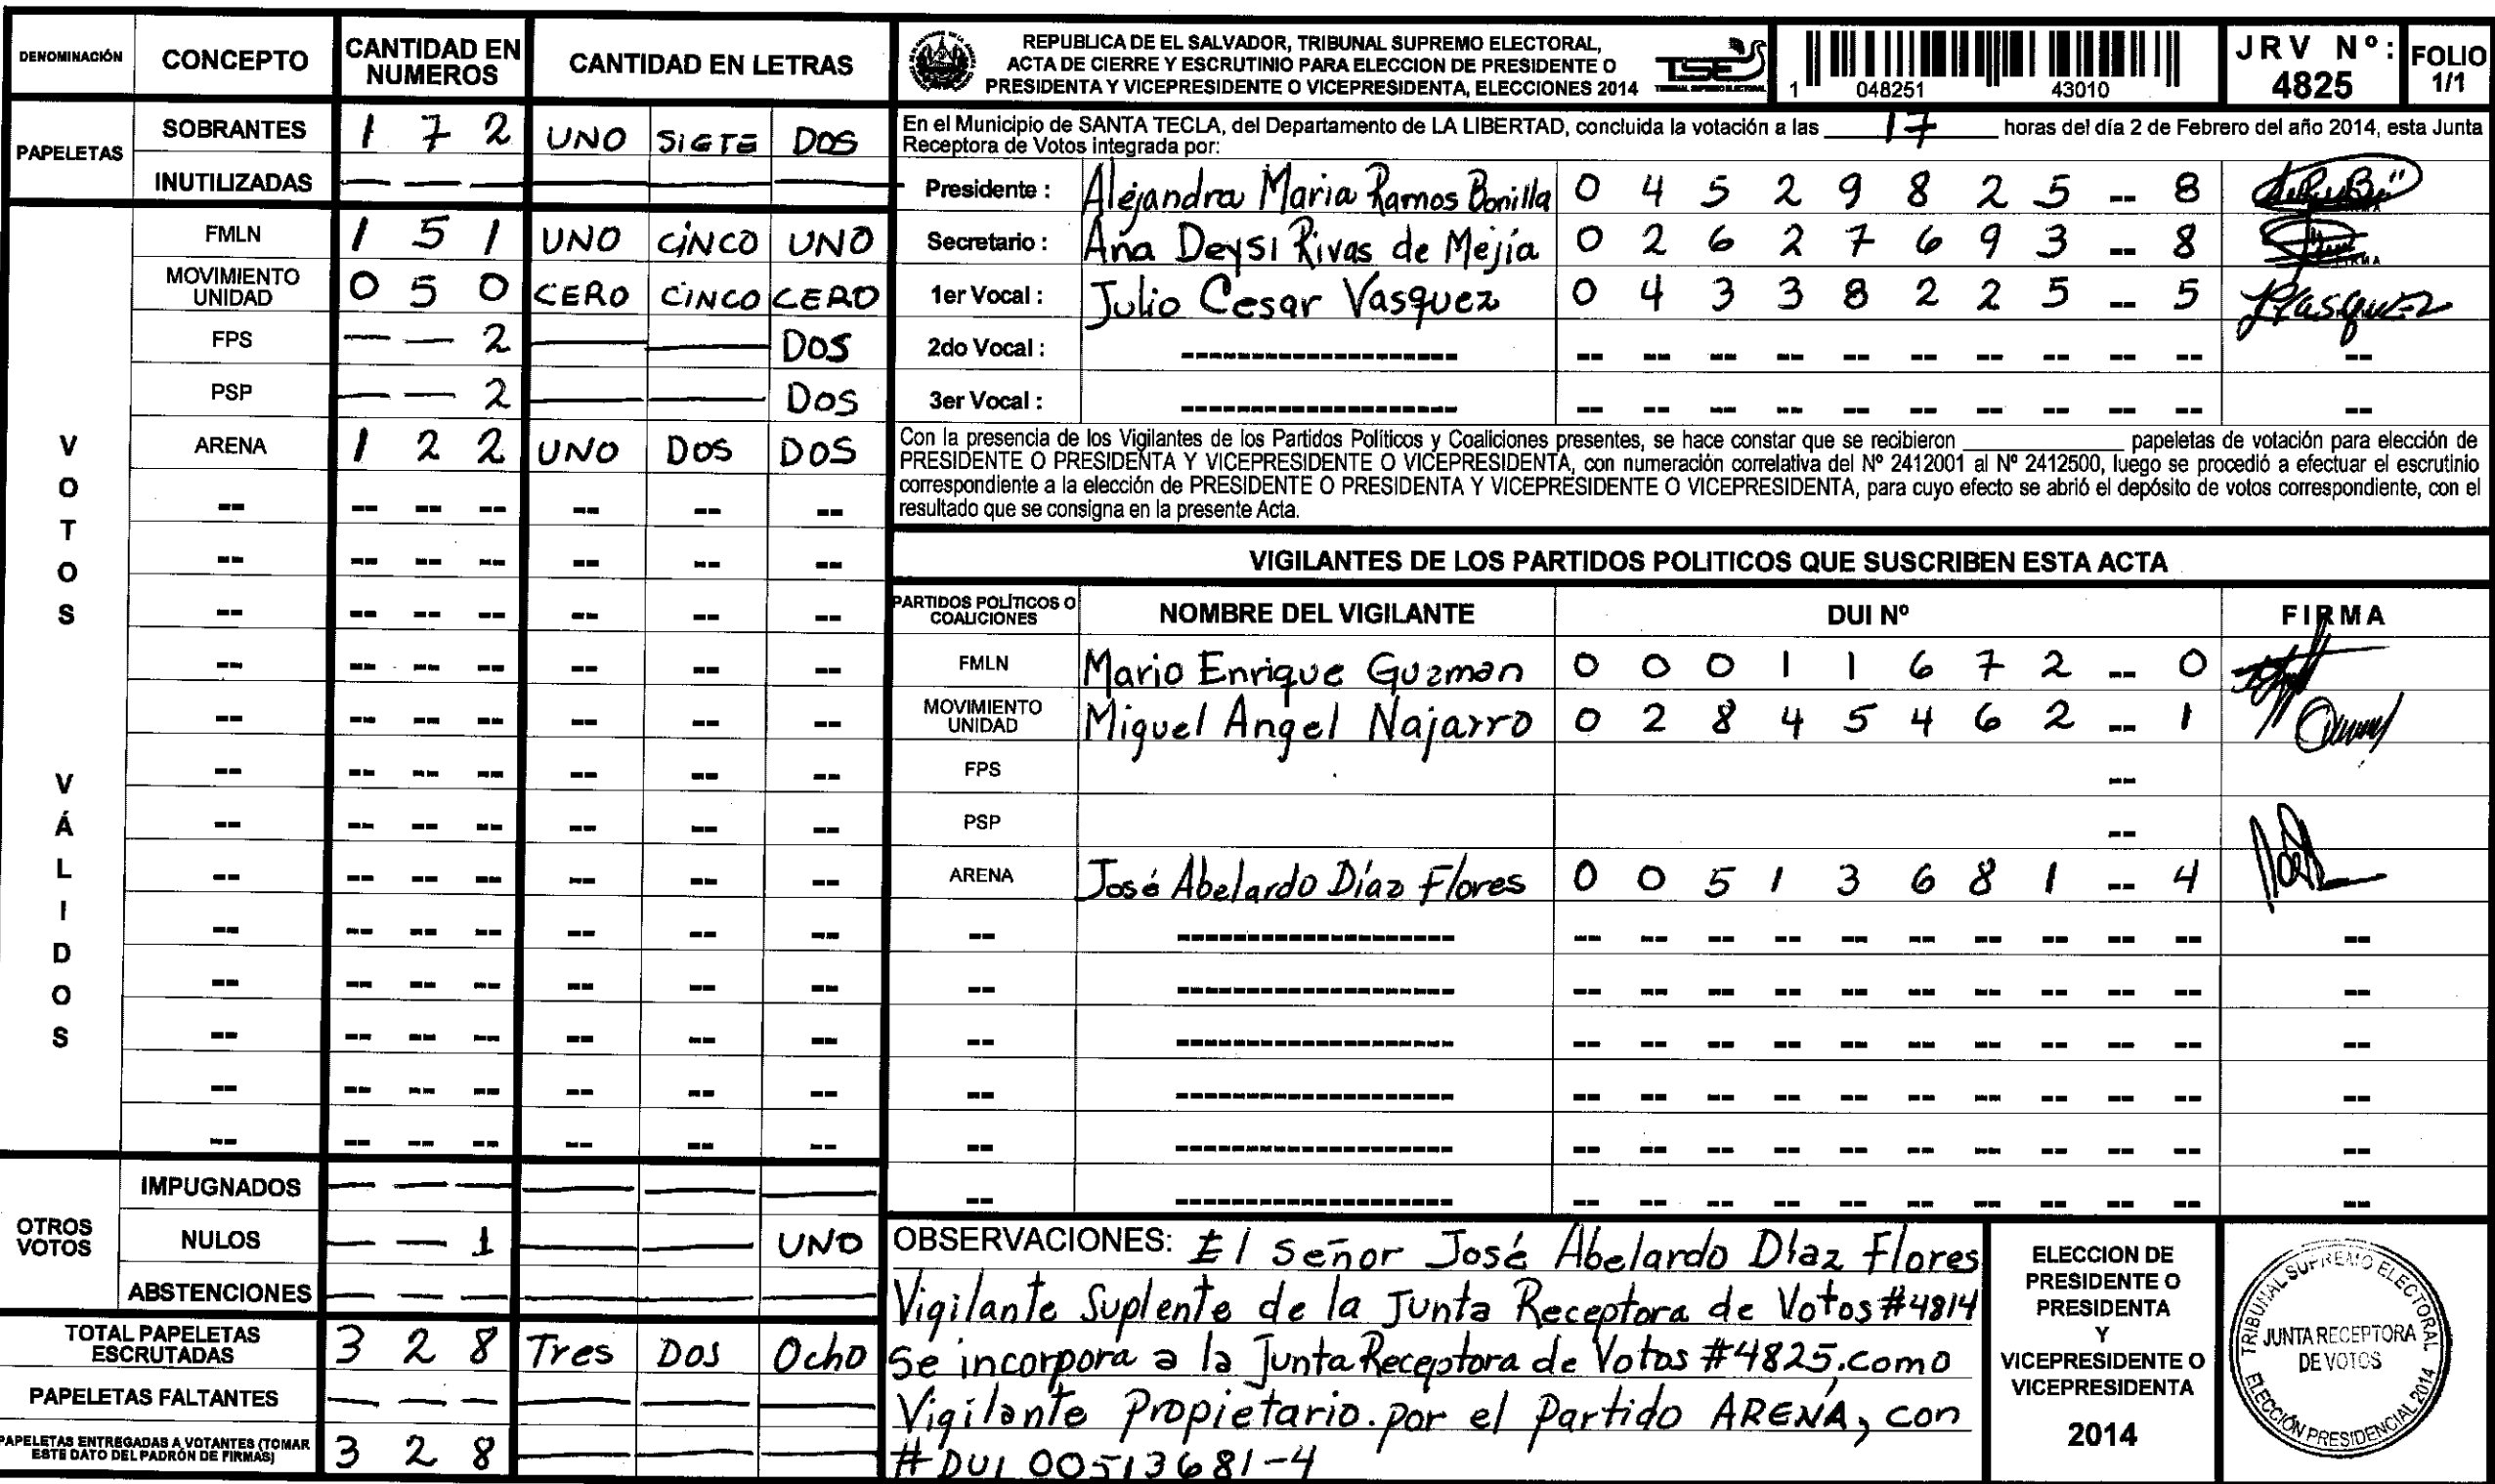 DENOMINACIÓN CONCEPTO CANTIDAD EN NUMEROS CANTIDAD EN LETRAS
PAPELETAS
SOBRANTES 1 7 2 UNO SIGTE DOS
INUTILIZADAS — — — — — —
VOTOS VÁLIDOS
FMLN 1 5 1 UNO CINCO UNO
MOVIMIENTO UNIDAD 0 5 0 CERO CINCO CERO
FPS — — 2 — — DOS
PSP — — 2 — — DOS
ARENA 1 2 2 UNO DOS DOS
-- -- -- -- -- -- --
-- -- -- -- -- -- --
-- -- -- -- -- -- --
-- -- -- -- -- -- --
-- -- -- -- -- -- --
-- -- -- -- -- -- --
-- -- -- -- -- -- --
-- -- -- -- -- -- --
-- -- -- -- -- -- --
-- -- -- -- -- -- --
-- -- -- -- -- -- --
-- -- -- -- -- -- --
-- -- -- -- -- -- --
OTROS VOTOS
IMPUGNADOS — — — — — —
NULOS — — 1 — — UNO
ABSTENCIONES — — — — — —
TOTAL PAPELETAS ESCRUTADAS 3 2 8 Tres Dos Ocho
PAPELETAS FALTANTES — — — — — —
PAPELETAS ENTREGADAS A VOTANTES (TOMAR ESTE DATO DEL PADRÓN DE FIRMAS) 3 2 8 — — —
REPUBLICA DE EL SALVADOR, TRIBUNAL SUPREMO ELECTORAL,
ACTA DE CIERRE Y ESCRUTINIO PARA ELECCION DE PRESIDENTE O
PRESIDENTA Y VICEPRESIDENTE O VICEPRESIDENTA, ELECCIONES 2014
TSE
1 048251 43010
JRV Nº: 4825
FOLIO 1/1
En el Municipio de SANTA TECLA, del Departamento de LA LIBERTAD, concluida la votación a las 17 horas del día 2 de Febrero del año 2014, esta Junta
Receptora de Votos integrada por:
Presidente : Alejandra Maria Ramos Bonilla 0 4 5 2 9 8 2 5 -- 8
Secretario : Ana Deysi Rivas de Mejía 0 2 6 2 7 6 9 3 -- 8
1er Vocal : Julio Cesar Vasquez 0 4 3 3 8 2 2 5 -- 5 Vasquez
2do Vocal : ------------------ -- -- -- -- -- -- -- -- -- -- --
3er Vocal : ------------------ -- -- -- -- -- -- -- -- -- -- --
Con la presencia de los Vigilantes de los Partidos Políticos y Coaliciones presentes, se hace constar que se recibieron ________ papeletas de votación para elección de
PRESIDENTE O PRESIDENTA Y VICEPRESIDENTE O VICEPRESIDENTA, con numeración correlativa del Nº 2412001 al Nº 2412500, luego se procedió a efectuar el escrutinio
correspondiente a la elección de PRESIDENTE O PRESIDENTA Y VICEPRESIDENTE O VICEPRESIDENTA, para cuyo efecto se abrió el depósito de votos correspondiente, con el
resultado que se consigna en la presente Acta.
VIGILANTES DE LOS PARTIDOS POLITICOS QUE SUSCRIBEN ESTA ACTA
PARTIDOS POLÍTICOS O COALICIONES NOMBRE DEL VIGILANTE DUI Nº FIRMA
FMLN Mario Enrique Guzman 0 0 0 1 1 6 7 2 -- 0
MOVIMIENTO UNIDAD Miguel Angel Najarro 0 2 8 4 5 4 6 2 -- 1
FPS --
PSP --
ARENA José Abelardo Díaz Flores 0 0 5 1 3 6 8 1 -- 4
-- ------------------ -- -- -- -- -- -- -- -- -- -- --
-- ------------------ -- -- -- -- -- -- -- -- -- -- --
-- ------------------ -- -- -- -- -- -- -- -- -- -- --
-- ------------------ -- -- -- -- -- -- -- -- -- -- --
-- ------------------ -- -- -- -- -- -- -- -- -- -- --
-- ------------------ -- -- -- -- -- -- -- -- -- -- --
OBSERVACIONES: El Señor José Abelardo DIaz Flores
Vigilante Suplente de la Junta Receptora de Votos #4814
Se incorpora a la Junta Receptora de Votos #4825, como
Vigilante Propietario. por el Partido ARENA, con
# DUI 00513681-4
ELECCION DE
PRESIDENTE O
PRESIDENTA
Y
VICEPRESIDENTE O
VICEPRESIDENTA
2014
TRIBUNAL SUPREMO ELECTORAL
JUNTA RECEPTORA
DE VOTOS
ELECCIÓN PRESIDENCIAL 2014